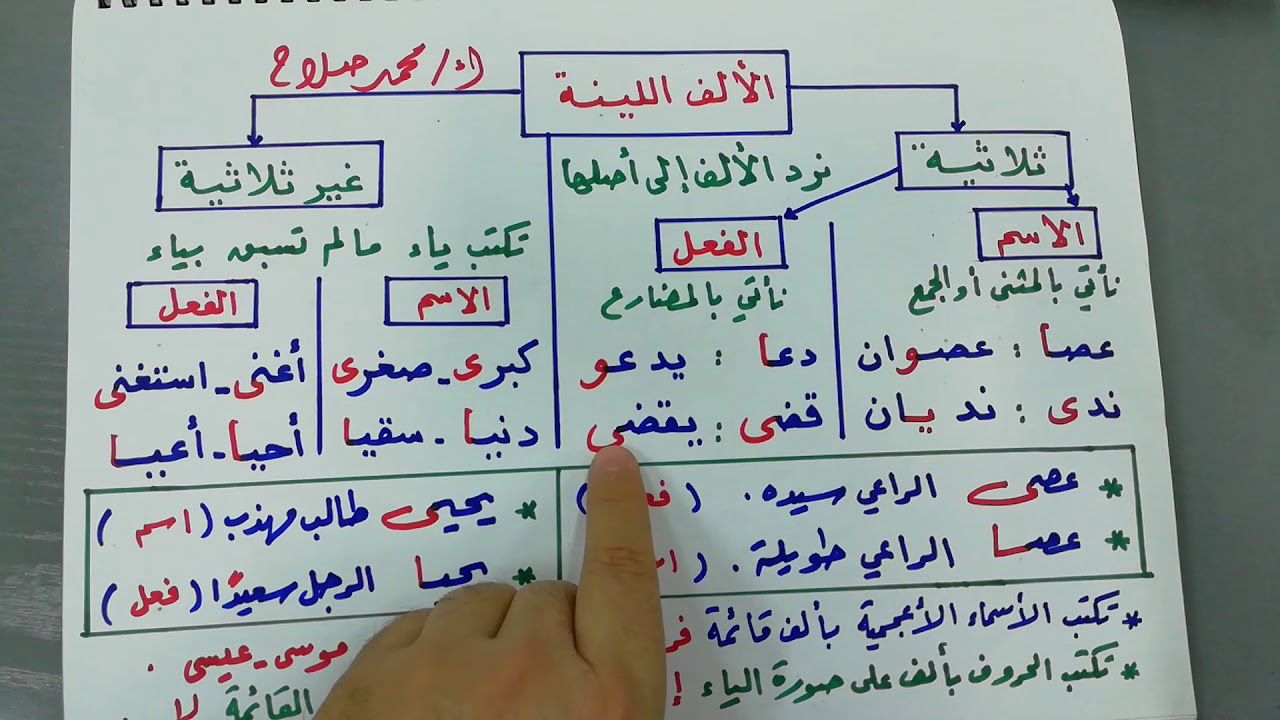 أ/ محمد صلاح
الألف اللينة
ثلاثية
نرد الألف إلى أصلها
الاسم
نأتي بالمثنى أو الجمع
عصا : عصوان
ندى : نديان
الفعل
نأتي بالمضارع
دعا : يدعو
قضى : يقضي
غير ثلاثية
تكتب ياء مالم تسبق بياء
الاسم
كبرى - صغرى
دنيا - سقيا
الفعل
أغنى - استغنى
أحيا - أعيا
* عصى الراعي سيده . (
* عصا الراعي طويلة . (
* يحيى طالب مهذب ( اسم )
* يحيا الرجل سعيدًا ( فعل )
* تكتب الأسماء الأعجمية بألف قائمة موسى - عيسى .
* تكتب الحروف بألف على صورة الياء القائمة لا